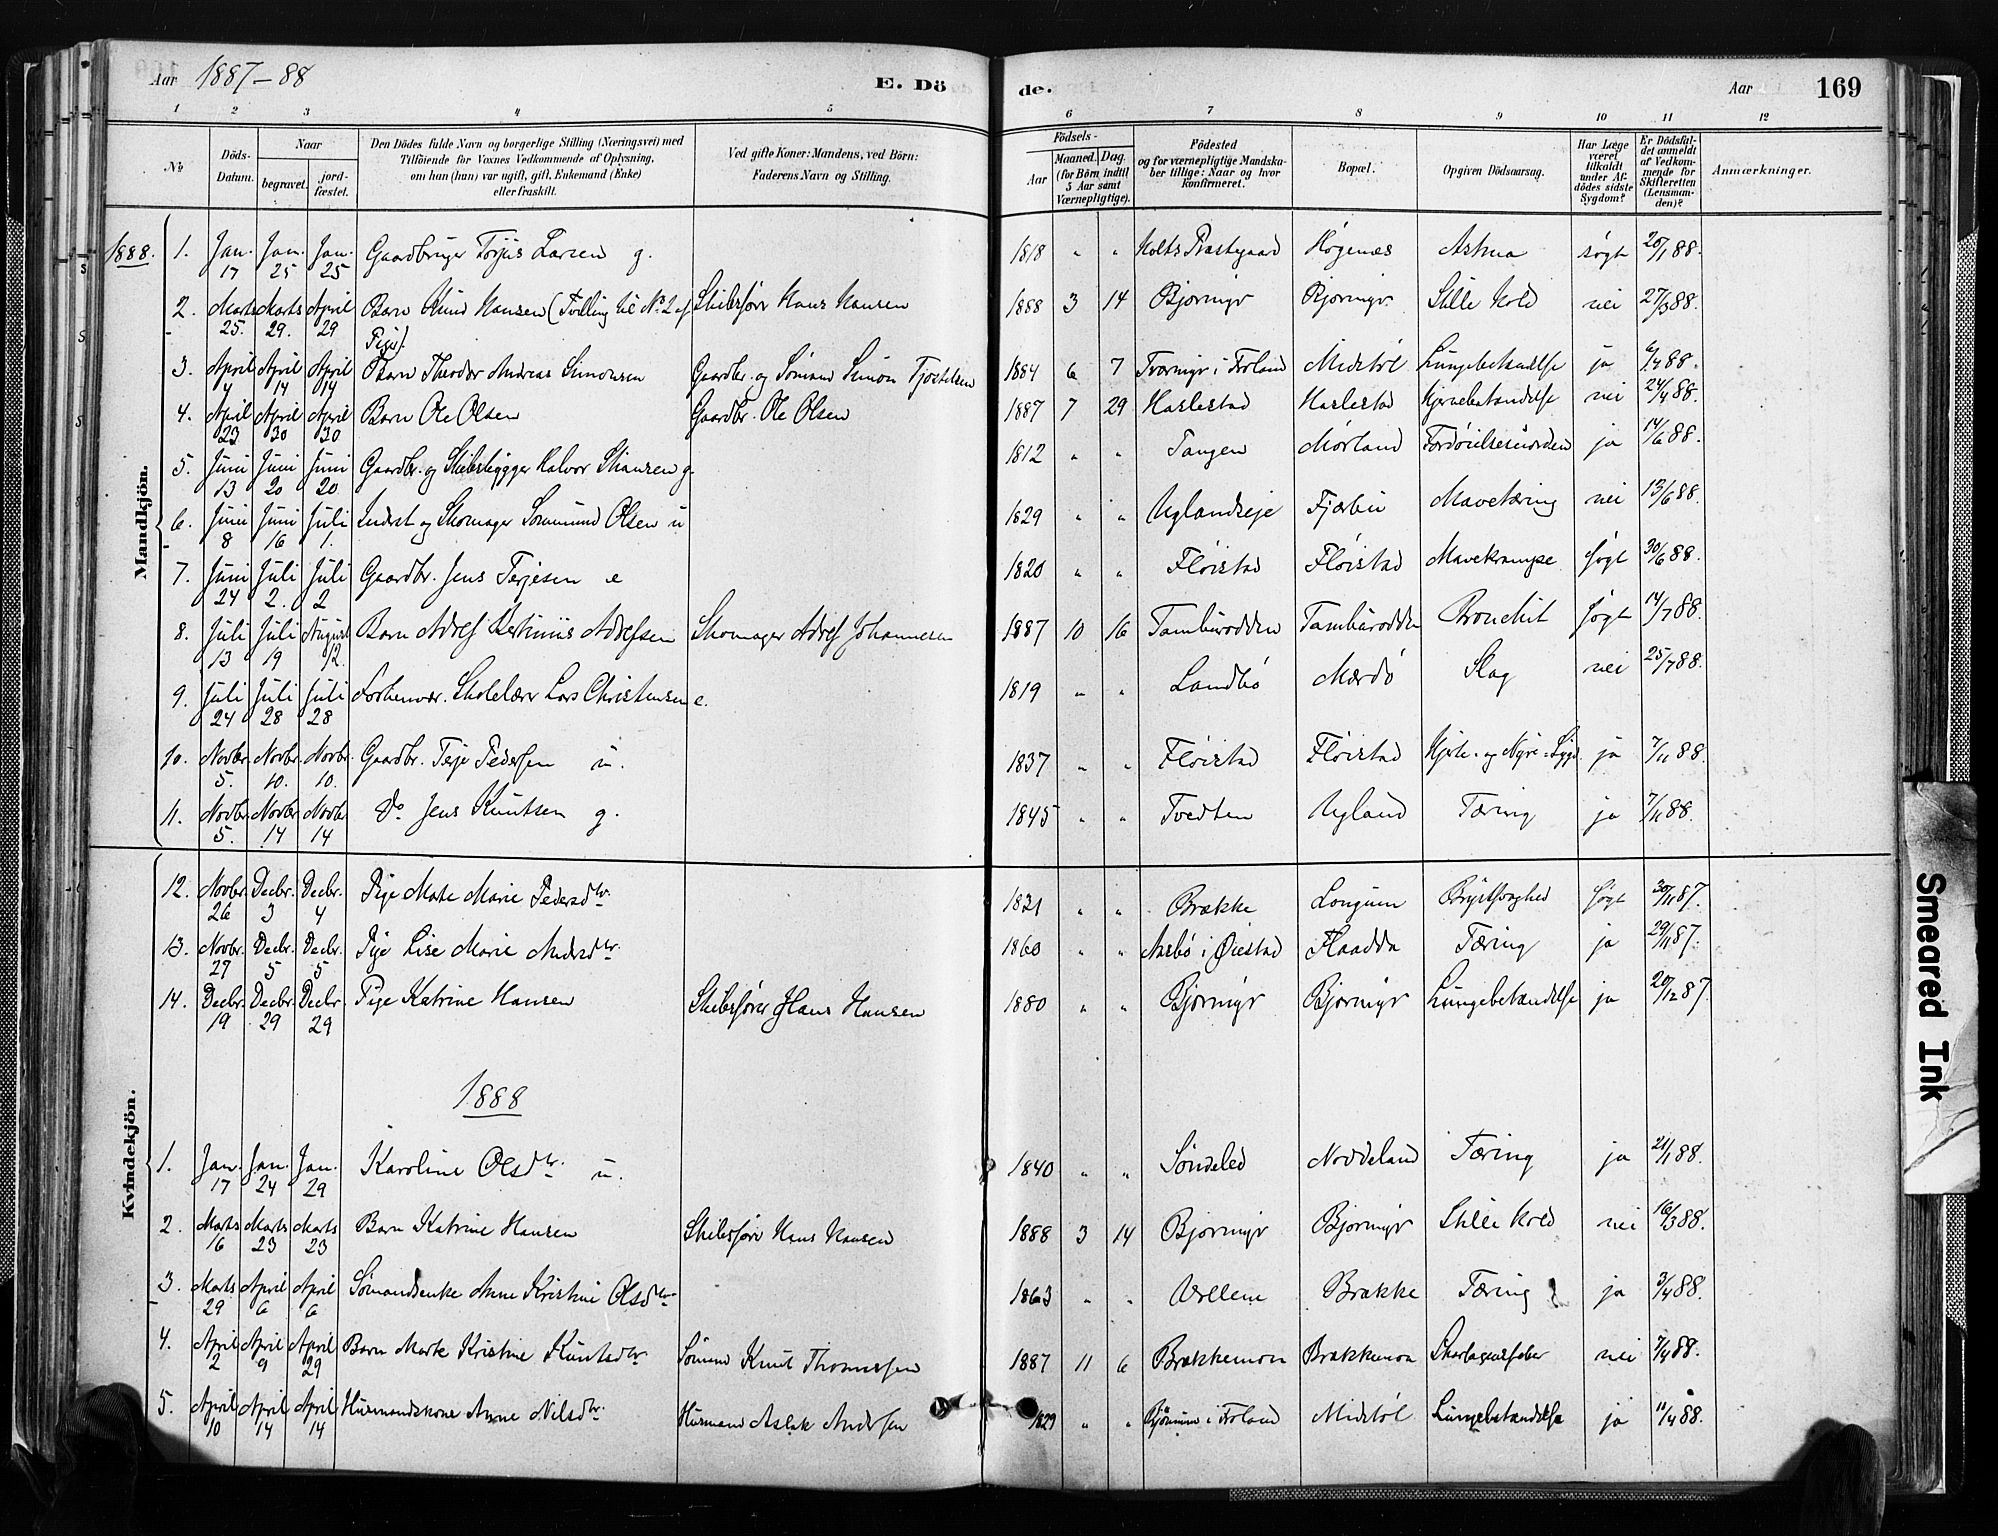 Aar 1887-88 E. Dö de. Aar 169
1 2 3 4 5 6 7 8 9 10 11 12
No
Döds-Datum.
Naar begravet. jord-fæstet.
Den Dödes fulde Navn og borgerlige Stilling (Næringsvei) med Tilföiende for Voxnes Vedkommende af Oplysning, om han (hun) var ugift, gift, Enkemand (Enke) eller fraskilt.
Ved gifte Koner: Mandens, ved Börn: Faderens Navn og Stilling.
Födsels- Aar Maaned. Dag. (for Börn indtil 5 Aar samt Værnepligtige).
Födested og for værnepligtige Mandskaber tillige: Naar og hvor konfirmeret.
Bopæl.
Opgiven Dödsaarsag.
Har Læge været tilkaldt under Afdödes sidste Sygdom?
Er Dödsfaldet anmeldt af Vedkommende for Skifteretten (Lensmanden)?
Anmærkninger.
Mandkjön.
1888. 1. Jan. 17 Jan. 25 Jan. 25 Gaardbruger Terjus Larsen g. 1818 " " Holts Præstegaard Høgenæs Asthma søgt 20/1 88.
2. Marts 25. Marts 29. April 29 Barn Knud Hansen (Tvilling til No 2 af Piger). Skibsfører Hans Hansen 1888 3 14 Bjormyr Bjormyr Stille Kold nei 27/3 88.
3. April 4 April 14 April 14 Barn Theodor Andreas Simonsen Gaardbr. og Sømand Simon Tjostelsen 1884 6 7 Tvermyr i Froland Midtbøl Lungebetændelse ja 6/4 88.
4. April 23 April 30 April 30 Barn Ole Olsen Gaardbr. Ole Olsen 1887 7 29 Haslestad Haslestad Hjernebetændelse nei 24/4 88.
5. Juni 13 Juni 20 Juni 20 Gaardbr. og Skibsbygger Halvor g. 1812 " " Tangen Mørland ja 14/6 88.
6. Juni 8 Juni 16 Juli 1. Inderst og Skomager Sørenmund Olsen u 1829 " " Uglandseje Fjærbu Mavetæring nei 13/6 88.
7. Juni 24 Juli 2. Juli 2 Gaardbr. Jens Terjesen e 1820 " " Fløistad Fløistad Mavekrampe søgt 30/6 88.
8. Juli 13 Juli 19 August 12. Barn Adolf Kertinius Adolfsen Skomager Adolf Johannesen 1887 10 16 Tambürodden Tambürodden Bronchit søgt 14/7 88.
9. Juli 24 Juli 28 Juli 28 Forhenvær. Skolelærer Lars Christensen e. 1819 " " Landbø Mærdø Slag nei 25/7 88.
10. Novbr. 5. Novbr. 10. Novbr. 10. Gaardbr. Terje Pedersen u. 1837 " " Fløistad Fløistad Hjerte- og Nyre-Sygd. ja 7/11 88.
11. Novbr. 5. Novbr. 14 Novbr. 14 Do Jens Knutsen g. 1845 " " Tvedten Ugland Tæring ja 7/11 88.
Kvindekjön.
12. Novbr. 26 Decbr. 3 Decbr. 4 Pige Marte Marie Pedersdtr. 1821 " " Brække Longum Brystsvaghed søgt 30/11 87.
13. Novbr. 27 Decbr. 5 Decbr. 5 Pige Lise Marie Andersdtr. 1860 " " Aasbø i Øiestad Flaadda Tæring ja 29/11 87.
14. Decbr. 19 Decbr. 29 Decbr. 29 Pige Katrine Hansen Skibsfører Hans Hansen 1880 " " Bjormyr Bjormyr Lungebetændelse ja 20/12 87.
1888
1. Jan. 17 Jan. 24 Jan. 29 Karoline Olsdtr. u. 1840 " " Søndeled Noddeland Tæring ja 21/1 88.
2. Marts 16 Marts 23 Marts 23 Barn Katrine Hansen Skibsfører Hans Hansen 1888 3 14 Bjormyr Bjormyr Stille Kold nei 16/3 88.
3. Marts 29 April 6 April 6 Sømandsenke Anne Kristine Olsdtr. 1863 " " Brække Tæring ja 3/4 88.
4. April 2 April 9 April 29 Barn Marte Kristine Knutsdtr. Sømand Knut Thomassen 1887 11 6 Brækkemoen Brækkemoen Skarlagensfeber nei 7/4 88.
5. April 10 April 14 April 14 Husmandskone Anne Nilsdtr. Husmand Aslak Andersen 1829 " " i Froland Midtbøl Lungebetændelse ja 11/4 88.
Smeared Ink